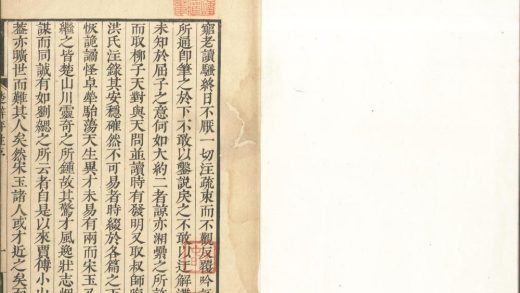 窮老讀騷終日不厭一切注疏束而不觀反覆吟
所通卽筆之於下不敢以鑿說戾之不敢以迂解
未知於屈子之意何如大約二者諒亦湘纍之所
而取栁子天對與天問並讀時有發明又取叔師
洪氏注錄其安穩確然不可易者時綴於各篇之下
恢詭譎怪卓犖駘蕩天生異才未易有兩而宋玉
繼之皆楚山川靈奇之所鍾故其驚才風逸壯志烟
謀而同誠有如劉勰之所云者自是以來賈傅小山
蓋亦曠世而難其人矣然宋玉諸人或才近之矣而